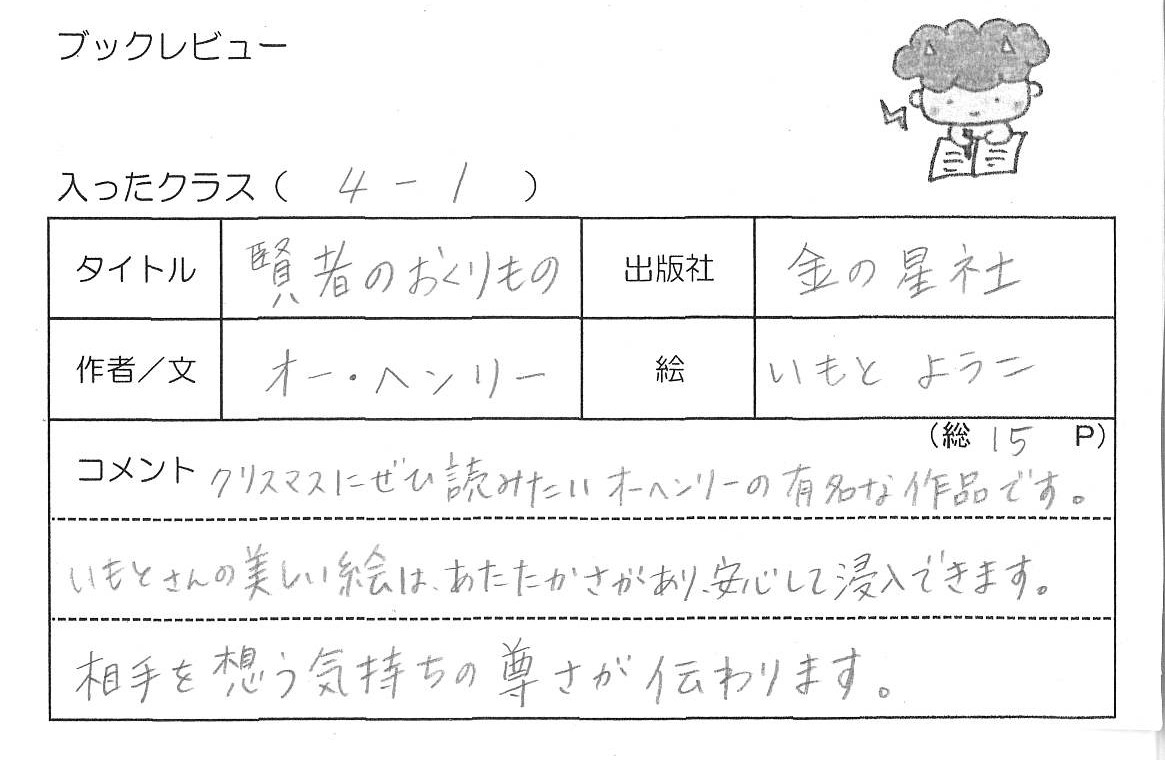 ブックレビュー
入ったクラス( 4-1 )
タイトル 賢者のおくりもの 出版社 金の星社
作者/文 オー・ヘンリー 絵 いもと ようこ
(総 15 P)
コメント クリスマスにぜひ読みたいオーヘンリーの有名な作品です。
いもとさんの美しい絵は、あたたかさがあり、安心して浸入できます。
相手を想う気持ちの尊さが伝わります。